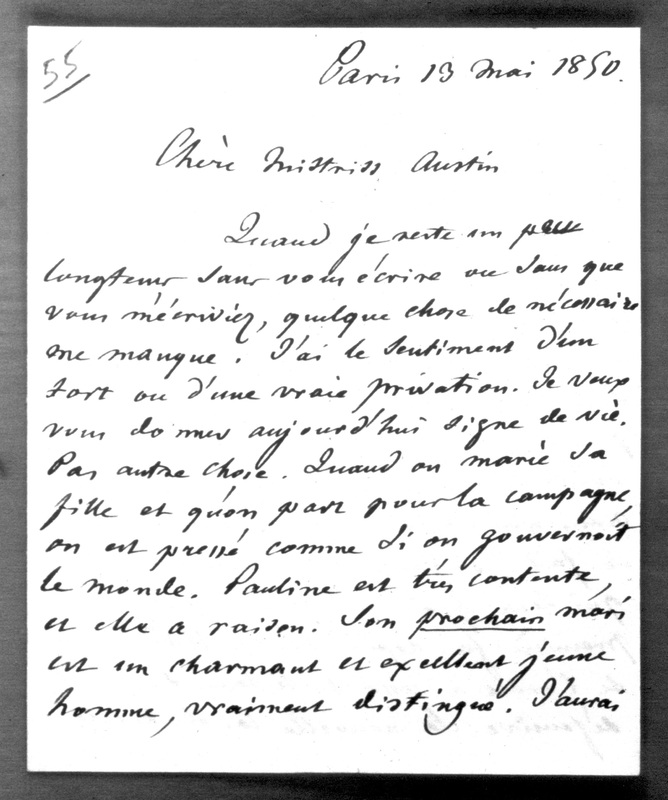 55
Paris 13 mai 1850.
Chère Mistriss Austin
Quand je reste un peu
longtems sans vous écrire ou sans que
vous m'écriviez, quelque chose de nécessaire
me manque. J'ai le sentiment d'un
tort ou d'une vraie privation. Je veux
vous donner aujourd'hui signe de vie.
Pas autre chose. Quand on marie sa
fille et qu'on part pour la campagne,
on est pressé comme si on gouvernoit
le monde. Pauline est très contente,
et elle a raison. Son prochain mari
est un charmant et excellent jeune
homme, vraiment distingué. J'aurai